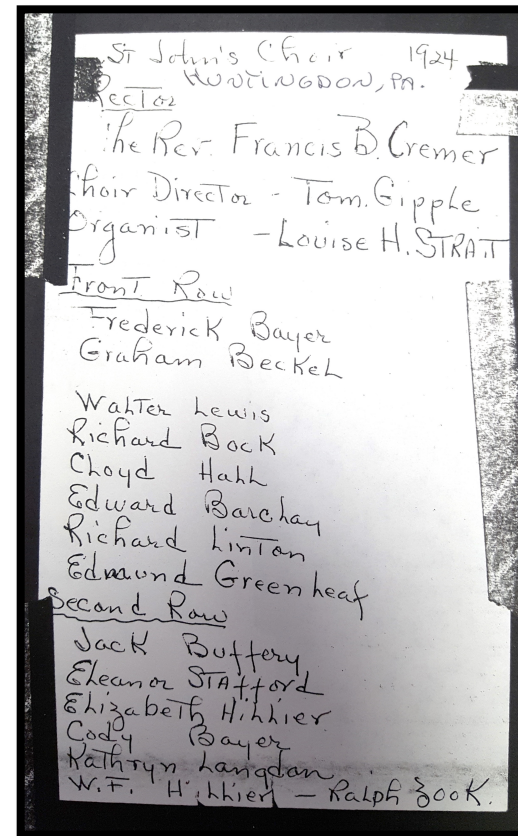 St John's Choir 1924
HUNTINGDON, PA.
Rector
The Rev. Francis B. Cremer
Choir Director - Tom. Gipple
Organist - Louise H. STRAIT
Front Row
Frederick Bayer
Graham Beckel
Walter Lewis
Richard Bock
Cloyd Hall
Edward Barclay
Richard Linton
Edmund Greenleaf
Second Row
Jack Buffery
Eleanor STAfford
Elizabeth Hillier
Cody Bayer
Kathryn Langdon
W.F. Hillier - Ralph Zook.